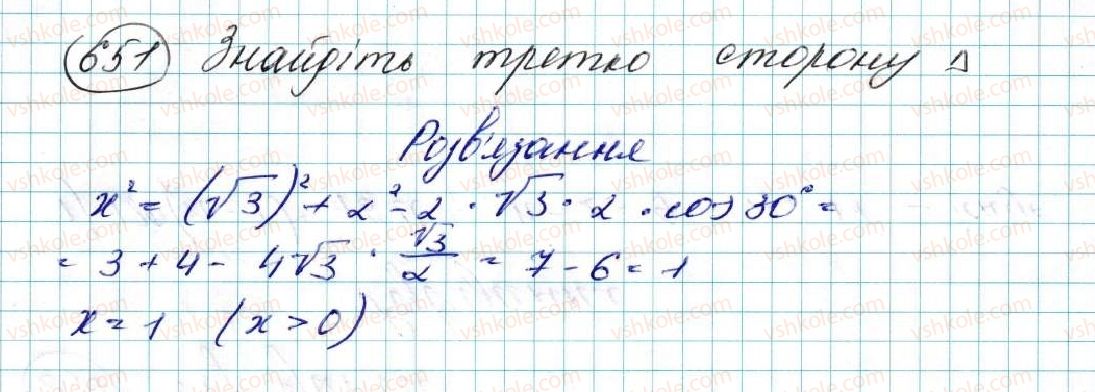 651 Знайдіть третю сторону Δ
Розв'язання
x² = (√3)² + 2² - 2 · √3 · 2 · cos 30° =
= 3 + 4 - 4√3 · √3/2 = 7 - 6 = 1
x = 1 (x > 0)
vshkole.com